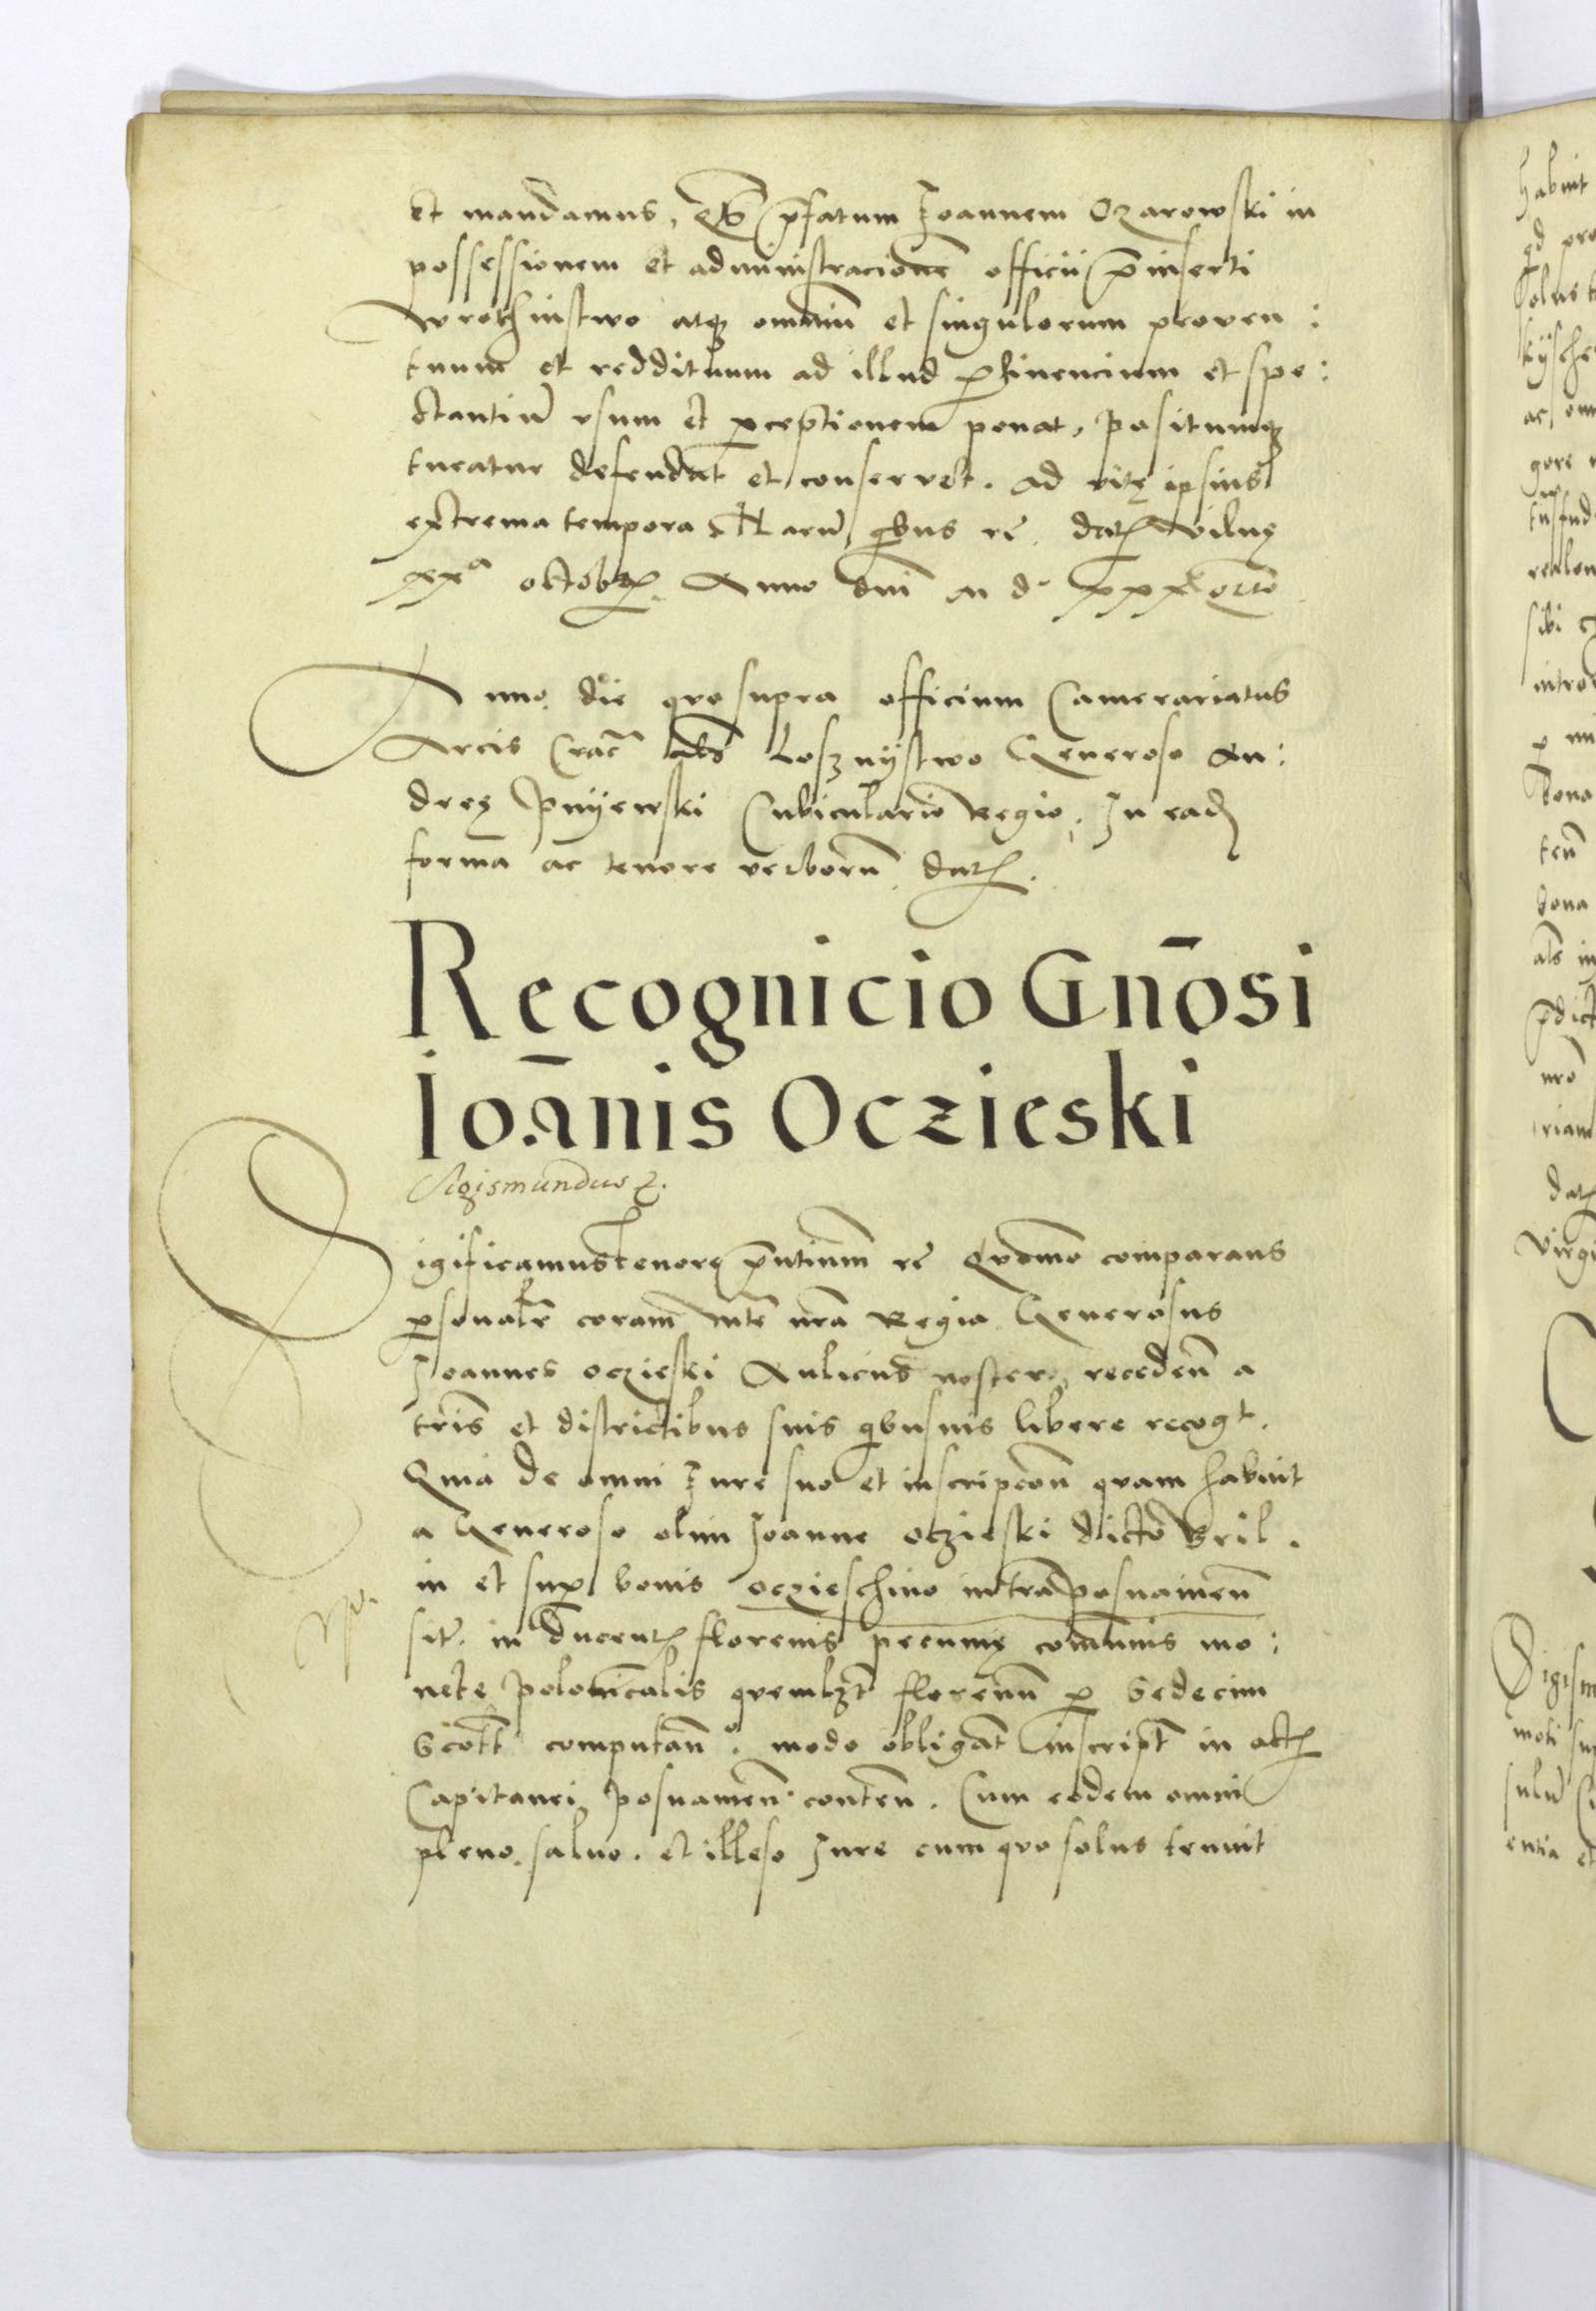 et mandamus, qtꝫ p̄fatum Joannem Ozarowski in
possessionem et administracionē officii p̄inserti
wrothinstwo atqꝫ omniū et singulorum proven:
tuum et reddituum ad illud ꝑtinencium et spe:
ctantiū usum et ꝑceptionem ponat, positumqꝫ
tueatur defendat et conservet. ad vitę ipsius
extrema tempora Harū qibus rē. datꝭ Vilnę
xxᵃ octobrꝭ. Anno dni M d° xxx
Anno die quo supra officium Camerariatus
Arcis Crac̄ als Loznystwo Generoso An:
dreę Pnyewski Cubiculario Regio, In eadꝫ
forma ac tenore verborū datꝭ.
Recognicio Gn̄osi
Ioānis Oczieski
Sigismundus ꝛ.
Sigificamus tenore p̄ntium rē Quōmo comparans
ꝑsonalr̄ coram Mte nrā Regia Generosus
Joannes oczieski Aulicus noster, recedeñ a
tris et districtibus suis qibusuis libere recogt.
Quia de omni Jure suo et inscripcōn quam habuit
a Generoso olim Joanne oczieski dicto Bril.
in et suꝑ bonis oczieschino in tra posnanieñ
sit. in ducentꝭ florenis pecunię cōmunis mo:
netę polonicalis quemlꝫt florenū ꝑ Sedecim
Scott computañ. modo obligāt inscript̄ in actꝭ
Capitanei posnanień. conteñ. Cum eodem omni
pleno, salvo. et illeso Jure cum quo solus tenuit